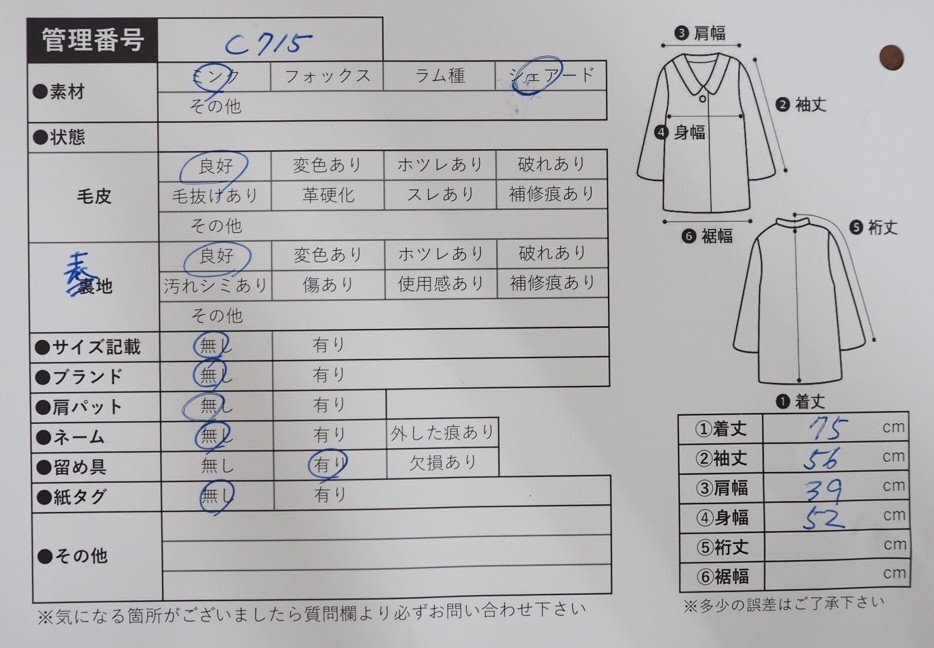 管理番号 C715
●素材 ミンク フォックス ラム種 シェアード
その他
●状態
毛皮 良好 変色あり ホツレあり 破れあり
毛抜けあり 革硬化 スレあり 補修痕あり
その他
表地 良好 変色あり ホツレあり 破れあり
汚れシミあり 傷あり 使用感あり 補修痕あり
その他
●サイズ記載 無し 有り
●ブランド 無し 有り
●肩パット 無し 有り
●ネーム 無し 有り 外した痕あり
●留め具 無し 有り 欠損あり
●紙タグ 無し 有り
●その他
※気になる箇所がございましたら質問欄より必ずお問い合わせ下さい
❸肩幅
❷袖丈
❹身幅
❻裾幅
❺裄丈
❶着丈
①着丈 75 cm
②袖丈 56 cm
③肩幅 39 cm
④身幅 52 cm
⑤裄丈 cm
⑥裾幅 cm
※多少の誤差はご了承下さい